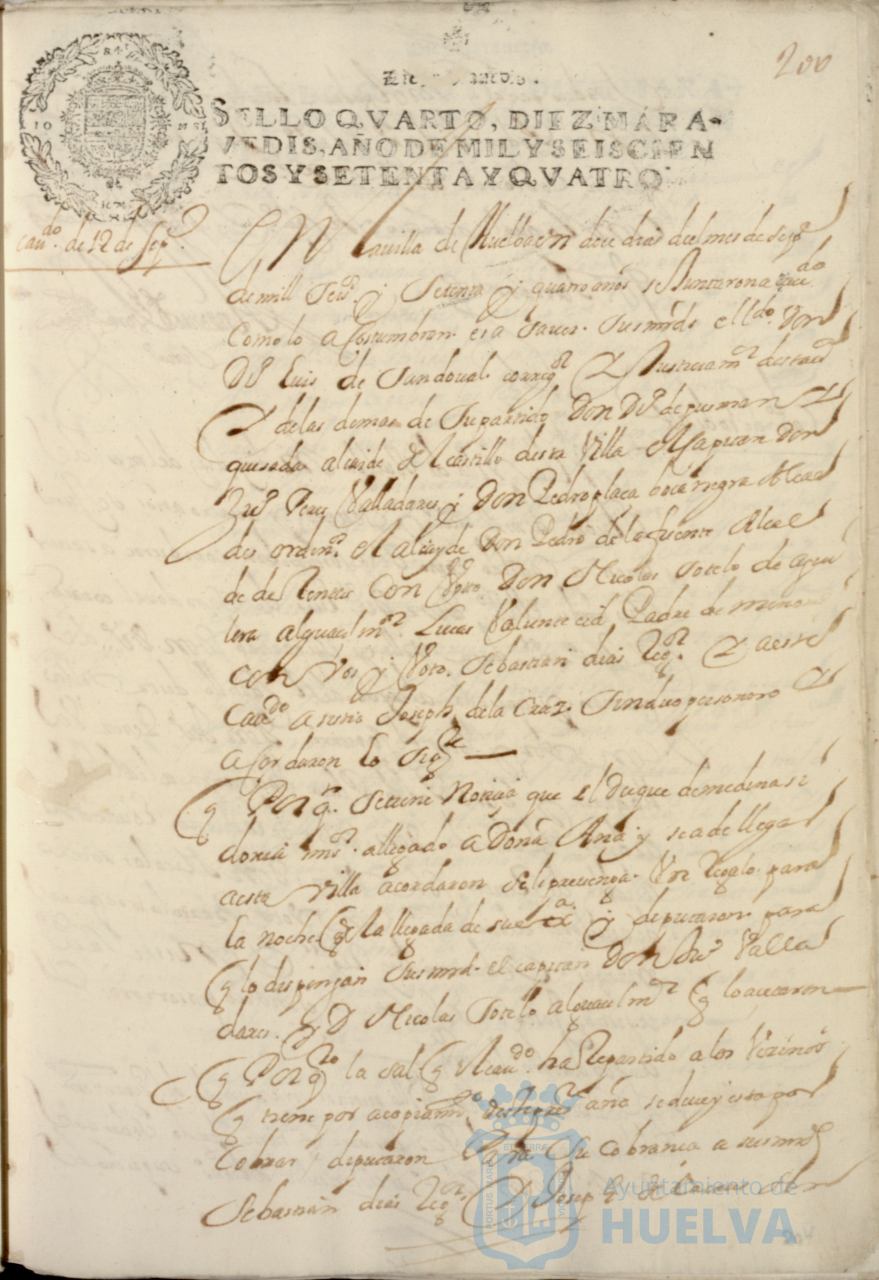 200
SELLO QVARTO, DIEZ MARA-
VEDIS, AÑO DE MIL Y SEISCIEN
TOS Y SETENTA Y QVATRO.
cauᵈᵒ. de 12 de Sepᵉ
En la uilla de Huelba en doce dias del mes de Sepᵉ
de mill Seisᵒ y Setenta y quatro años se Juntaron a cauᵈᵒ
Como lo a Costumbran es a sauer. Susmrds el lldᵒ. Don
Dᵒ Luis de Sandoual. correxᵒʳ y Justicia mᵒʳ desta uᵃ
y de las demas de Su partido Don Dᵒ de gusman y
quesada alcaide del castillo desta Villa el Capitan Don
Juᵒ Peres Valladares y Don Pedro plaça bocanegra Alcal
des ordinᵒˢ el alcayde Don Pedro de la fuente Alcal
de de con Voto Don Nicolas Sotelo de
alguacil mᵒʳ. Lucas Valiente cid Padre de meno
con Vos y Voto. Sebastian dias Regᵒʳ. y a este
Cauᵈᵒ asistio Joseph de la Cruz Sindico personero y
acordaron lo Sigᵗᵉ
q Por q. Se tiene Noticia que el Duque de medina si
donia mi sʳ. a llegado a Doña Ana y se a de llegar
a esta villa acordaron se le preuenga. Un Regalo para
la noche q la llegada de su exᵃ y diputaron para
q lo dispongan Susmrds. el capitan Don Juᵒ Valla
dares. y D Nicolas Sotelo alguacil mᵒʳ q lo acetaron
q Por qᵗᵒ la sal q el cauᵈᵒ. ha Repartido a los Vecinos
q tiene por acopiamᵗᵒ deste presᵗᵉ año se deue y esta por
Cobrar diputaron Para Su Cobranca a susmrds
Sebastian dias Regᵒʳ y Joseph de la
Ayuntamiento de
HUELVA